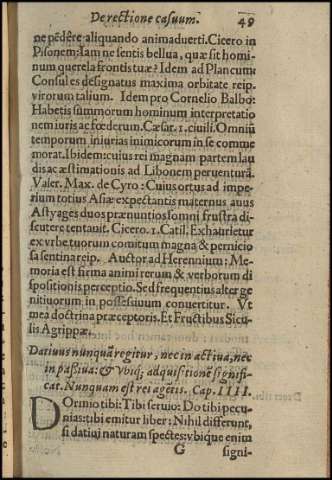 De rectione casuum. 49
ne pẽdêre aliquando animaduerti. Cicero in
Pisonem: Iam ne sentis bellua, quæ sit homi-
num querela frontis tuæ? Idem ad Plancum:
Consul es designatus maxima orbitate reip.
virorum talium. Idem pro Cornelio Balbo:
Habetis summorum hominum interpretatio
nem iuris ac fœderum. Cæsar. 1. ciuili. Omniũ
temporum iniurias inimicorum in se comme
morat. Ibidem: cuius rei magnam partem lau
dis ac æstimationis ad Libonem peruenturã.
Valer. Max. de Cyro: Cuius ortus ad impe-
rium totius Asiæ expectantis maternus auus
Astyages duos prænuntios somni frustra di-
scutere tentauit. Cicero. 1. Catil. Exhaurietur
ex vrbe tuorum comitum magna & pernicio
sa sentina reip. Auctor ad Herennium: Me-
moria est firma animi rerum & verborum di
spositionis perceptio. Sed frequentius alter ge
nitiuorum in possessiuum conuertitur. Vt
mea doctrina præceptoris. Et Fructibus Sicu-
lis Agrippæ.
Datiuus nunquã regitur, nec in actiua, nec
in passiua: & vbiq; adquisitionẽ signifi-
cat. Nunquam est rei agẽtis. Cap. IIII.
DOrmio tibi: Tibi seruio: Do tibi pecu-
nias: tibi emitur liber: Nihil differunt,
si datiui naturam spectes: vbique enim
G signi-